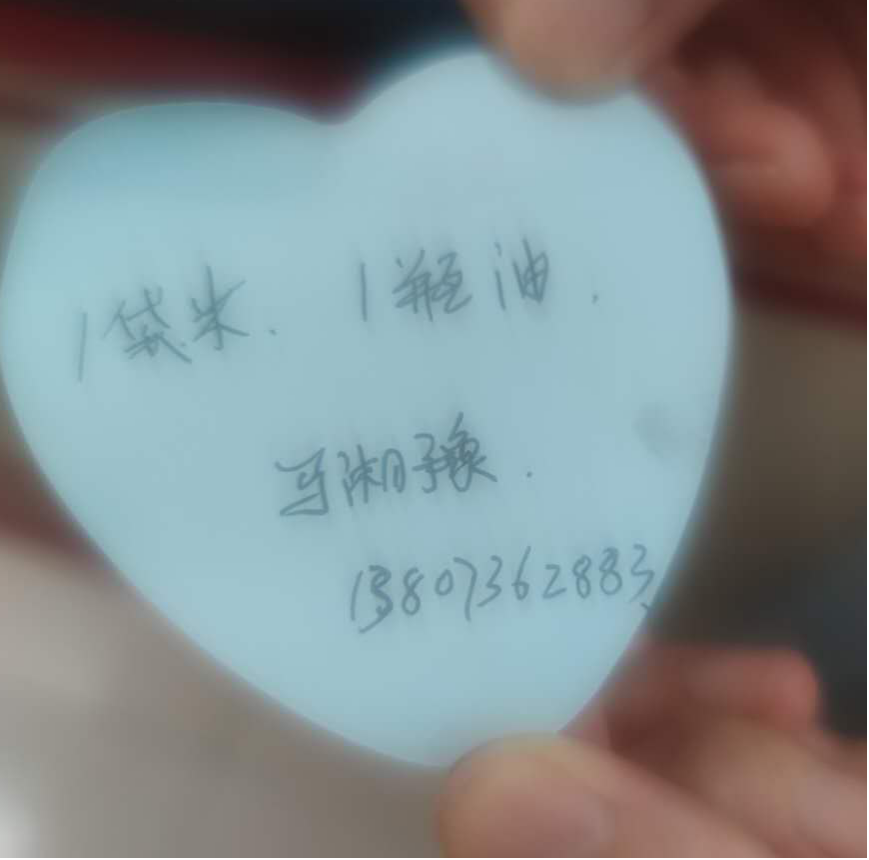 1袋米. 1瓶油.
马湘豫.
13807362883